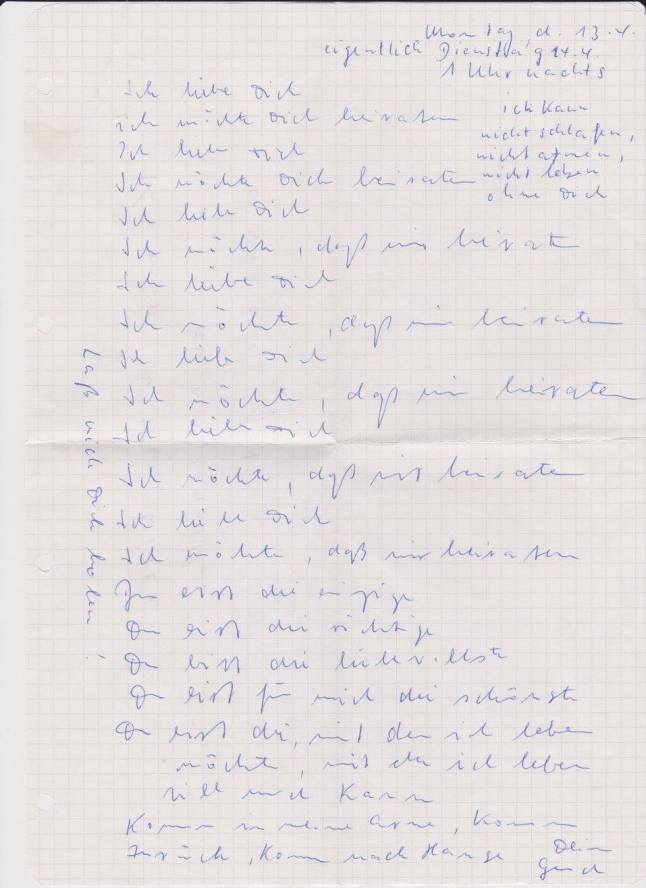 Montag, d. 13.4.
eigentlich Dienstag 14.4.
1 Uhr nachts
ich kann
nicht schlafen,
nicht atmen,
nicht leben
ohne Dich
Ich liebe Dich
ich möchte Dich heiraten
Ich liebe Dich
Ich möchte Dich heiraten
Ich liebe Dich
Ich möchte, daß wir heiraten
Ich liebe Dich
Ich möchte, daß wir heiraten
Ich liebe Dich
Ich möchte, daß wir heiraten
Ich liebe Dich
Ich möchte, daß wir heiraten
Ich liebe Dich
Ich möchte, daß wir heiraten
Du bist die einzige
Du bist die richtige
Du bist die liebevollste
Du bist für mich die schönste
Du bist die, mit der ich leben
möchte, mit der ich leben
will und kann
Komm in meine Arme, komm
zurück, komm nach Hause
Dein
Laß mich Dich holen!